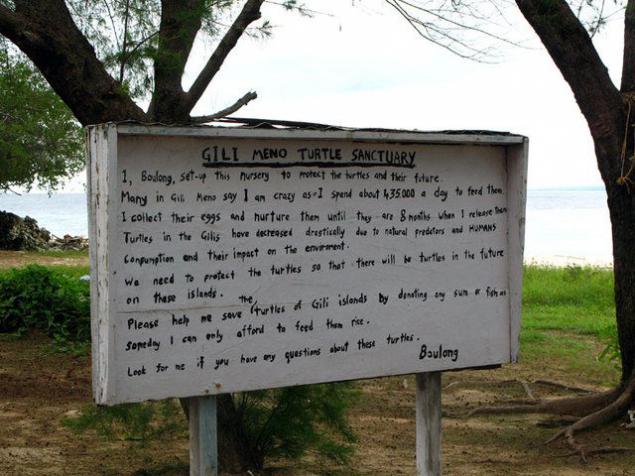 GILI MENO TURTLE SANCTUARY
I, Boulong, set-up this nursery to protect the turtles and their future.
Many in Gili Meno say I am crazy as I spend about 435.000 a day to feed them
I collect their eggs and nurture them until they are 8 months when I release them
Turtles in the Gilis have decreased drastically due to natural predators and HUMANS
Conpumption and their impact on the enviroment.
We need to protect the turtles so that there will be turtles in the future
on these islands.
Please help me save the turtles of Gili islands by donating any sum or fish as
someday I can only afford to feed them rice.
Look for me if you have any questions about these turtles.
Boulong